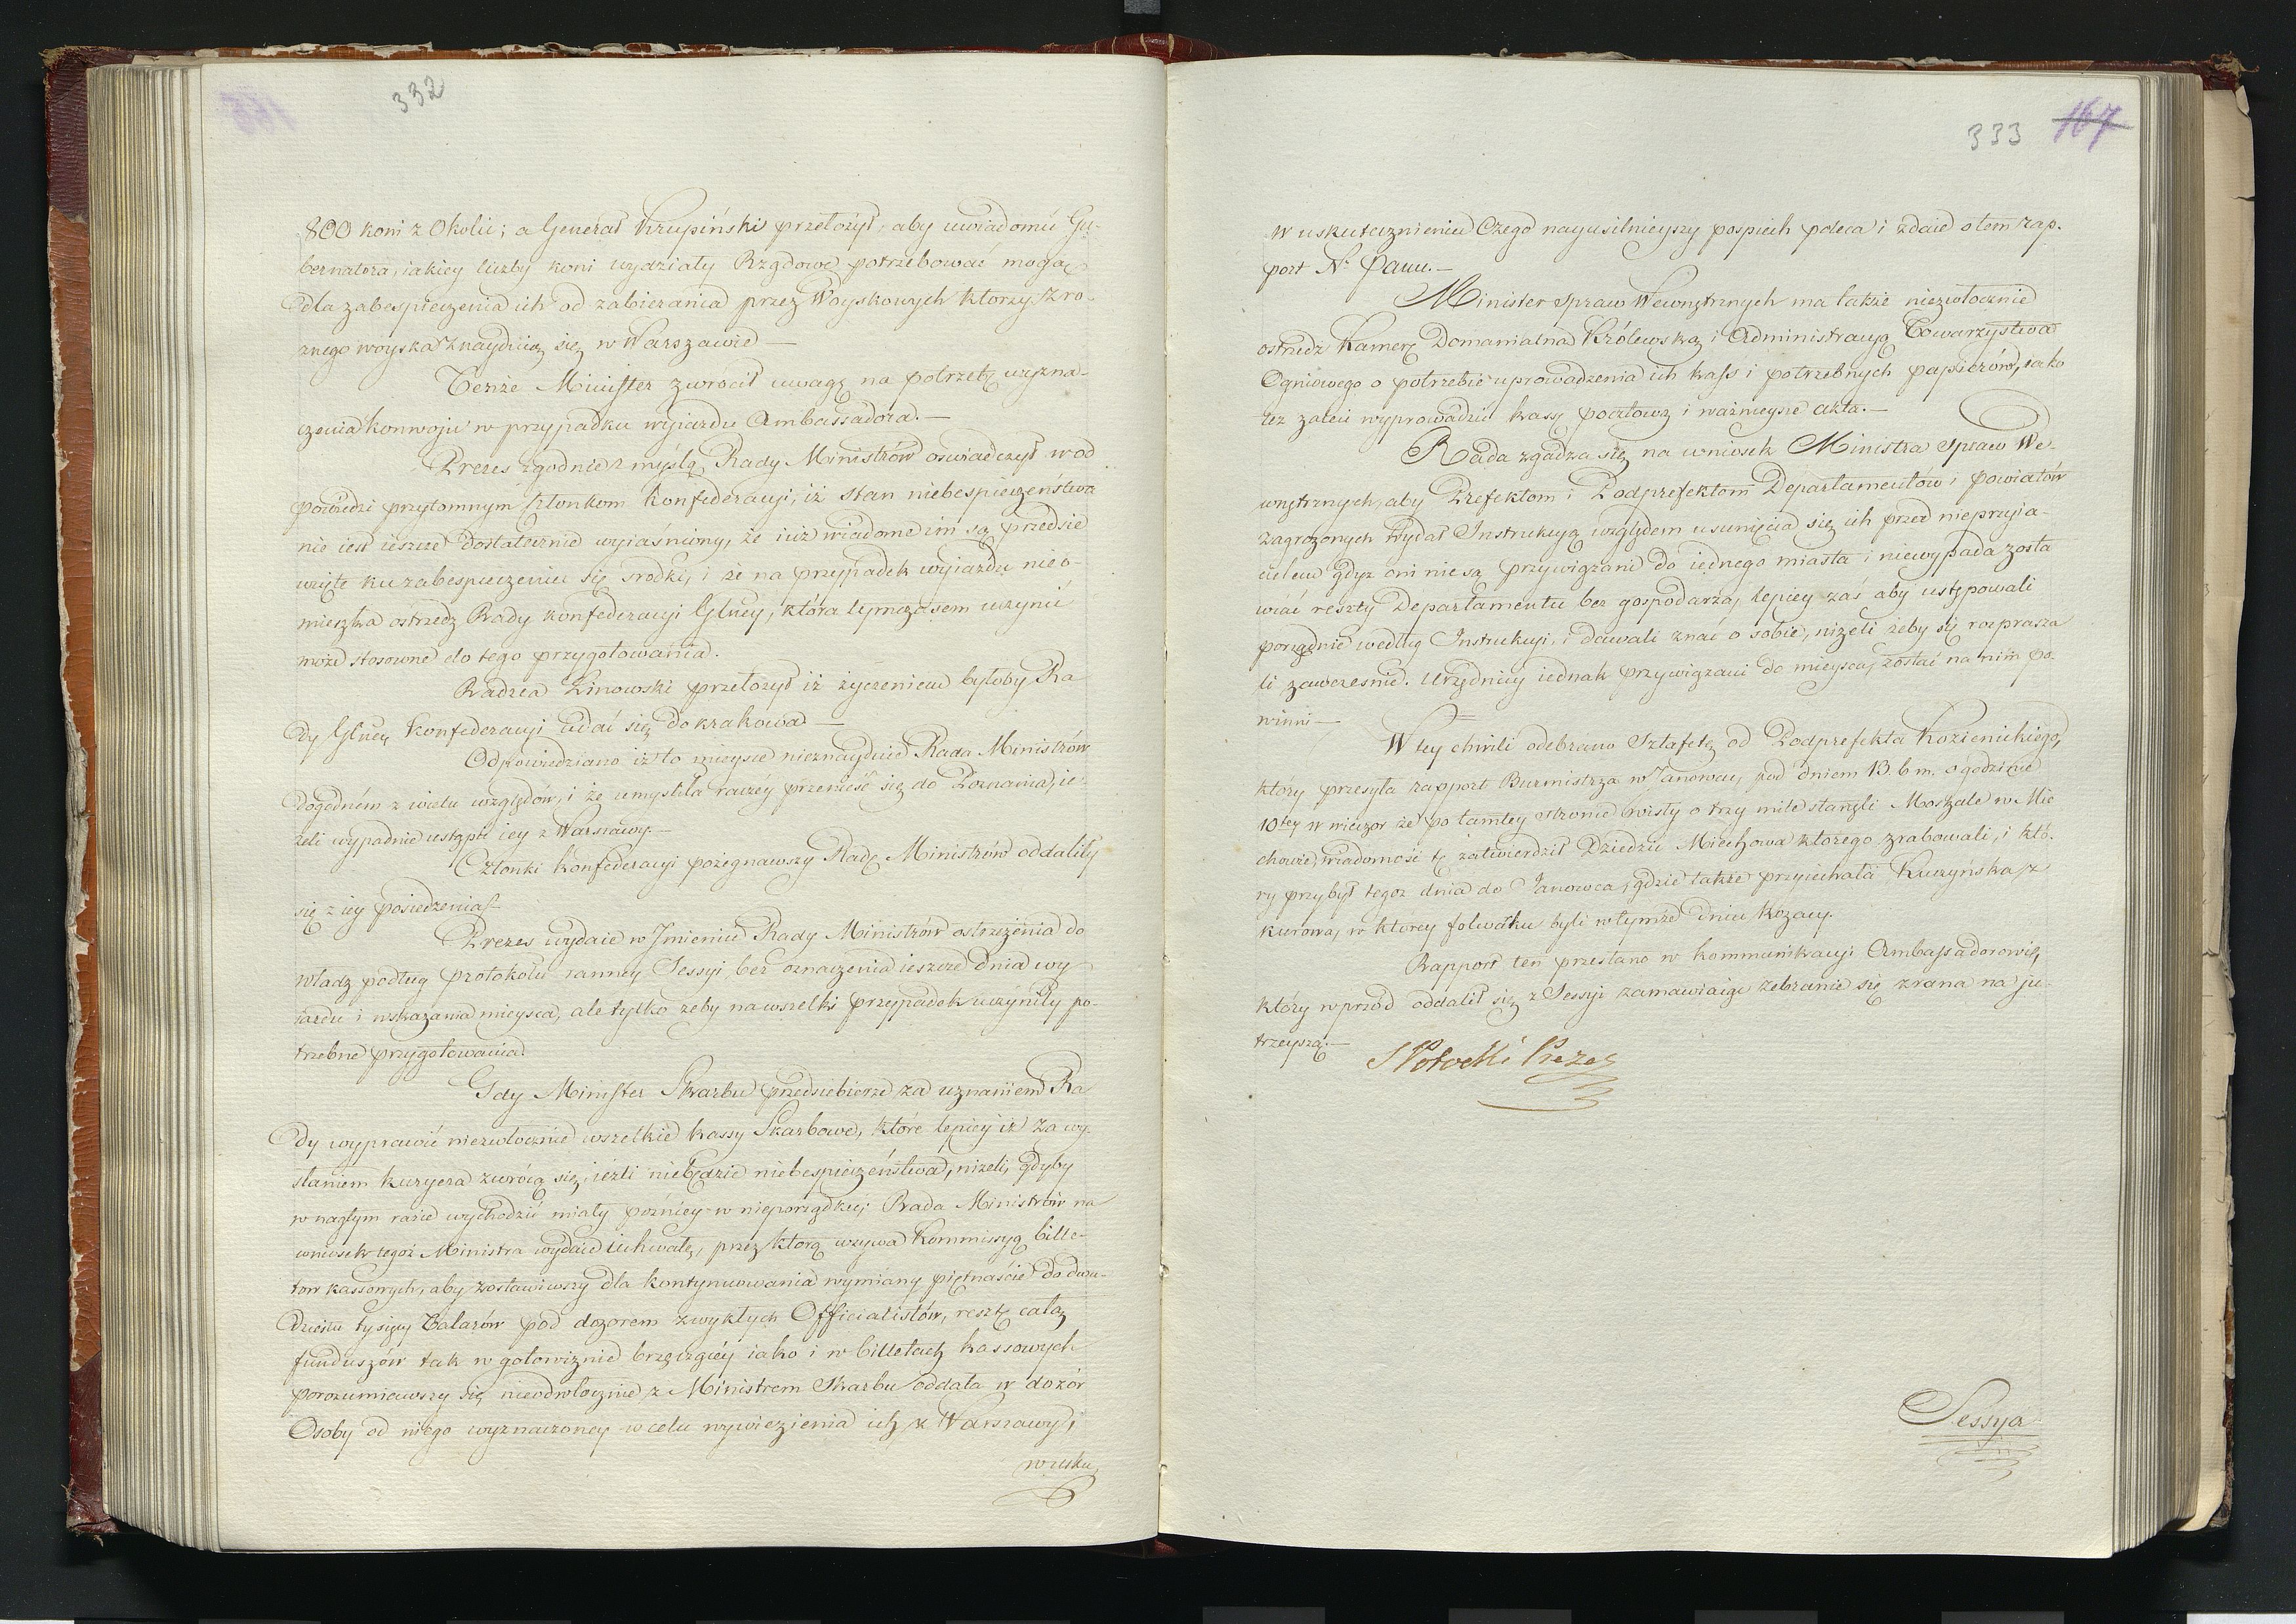 332
800 koni z Okolic; a Generał Krupiński przełożył, aby uwiadomić Gu-
bernatora, iakiey liczby koni wydziały Rządowe potrzebować mogą
dla zabespieczenia ich od zabierania przez Woyskowych którzy z ro-
znego woyska znayduią się w Warszawie —
Tenże Minister zwrócił uwagę na potrzebę wyzna-
czenia konwoju w przypadku wyjazdu Ambassadora. —
Prezes zgodnie z myślą Rady Ministrów oświadczył w od
powiedzi przytomnym Członkom Konfederacyi, iż stan niebespieczeństwa
nie iest ieszcze dostatecznie wyiaśniony, że iuż wiadome im są przedsie
wzięte ku zabespieczeniu się srodki, i że na przypadek wyiazdu nieo-
mieszka ostrzedz Rady Konfederacyi Głney, która tymczasem uczynić
może stosowne do tego przygotowania.
Radzca Linowski przełożył iż życzeniem byłoby Ra
dy Głney Konfederacyi udać się do Krakowa —
Odpowiedziano iż to mieysce nieznayduie Rada Ministrów
dogodném z wielu względów, i że umyśliła raczéy przenieść się do Poznania, ie-
żeli wypadnie ustąpić iey z Warszawy. —
Członki Konfederacyi pożegnawszy Radę Ministrów oddaliły
się z iey posiedzenia. —
Prezes wydaie w Jmieniu Rady Ministrów ostrzeżenia do
władz podług protokołu ranney Sessyi, bez oznaczenia ieszcze dnia wy
iazdu i wskazania mieysca, ale tylko żeby na wszelki przypadek uczyniły po-
trzebne przygotowania.
Gdy Minister Skarbu przedsiębierze za uznaniem Ra
dy wyprawić niezwłocznie wszelkie kassy Skarbowe, które lepiey iż za wy-
słaniem kuryera zwrócą się, ieżli niebędzie niebespieczeństwa, niżeli, gdyby
w nagłym razie wychodzić miały pózniey w nieporządku; Rada Ministrów na
wniosek tegoż Ministra wydaie Uchwałę, przez którą wzywa Kommissyą bille-
tow kassowych, aby zostawiwszy dla kontynuowania wymiany piętnaście do dwu-
dziestu tysięcy Talarów pod dozorem zwykłych Officialistów, resztę całą
funduszów tak w gotowiznie brzęczącéy iako i w billetach kassowych
porozumiawszy się nieodwłocznie z Ministrem Skarbu oddała w dozór
Osoby od niego wyznaczoney w celu wywiezienia ich z Warszawy,
w usku
333 167
w uskutecznieniu czego nayusilnieyszy pospiech poleca i zdaie o tem rap-
port Nu Panu. —
Minister Spraw Wewnętrznych ma także niezwłocznie
ostrzedz Kamerę Domanialną Królewską i Administracyą Towarzystwa
Ogniowego o potrzebie uprowadzenia ich kass i potrzebnych papierów, iako
też zaleci wyprowadzić kassę pocztową i ważnieysze akta. —
Rada zgadza się na wniosek Ministra Spraw We-
wnętrznych, aby Prefektom i Podprefektom Departamentów i powiatów
zagrożonych wydał Instrukcyą względem usunięcia się ich przed nieprzyia-
cielem gdyż oni nie są przywiązani do iednego miasta i niewypada zosta
wiać reszty Departamentu bez gospodarza, lepiey zaś aby ustępowali
porządnie według Instrukcyi, i dawali znać o sobie, niżeli żeby się rozprasza
li zawczesnie. Urzędnicy iednak przywiązani do mieysca, zostać na nim po-
winni —
W tey chwili odebrano Sztafetę od Podprefekta Kozienickiego,
który przesyła rapport Burmistrza w Janowcu, pod dniem 13. b. m. o godzinie
10tey w wieczor że po tamtey stronie Wisły o trzy mile stanęli Moskale w Mie
chowie, wiadomość tę zatwierdził Dziedzic Miechowa którego zrabowali, i któ-
ry przybył tegoż dnia do Janowca, gdzie także przyiechała Kuczyńska z
Kurowa, w którey folwarku byli w tymże dniu Kozacy.
Rapport ten przesłano w kommunikacyi Ambassadorowi,
który wprzód oddalił się z Sessyi zamawiaiąc zebranie się zrana na ju-
trzeyszą. —
S Potocki Prezes
Sessya